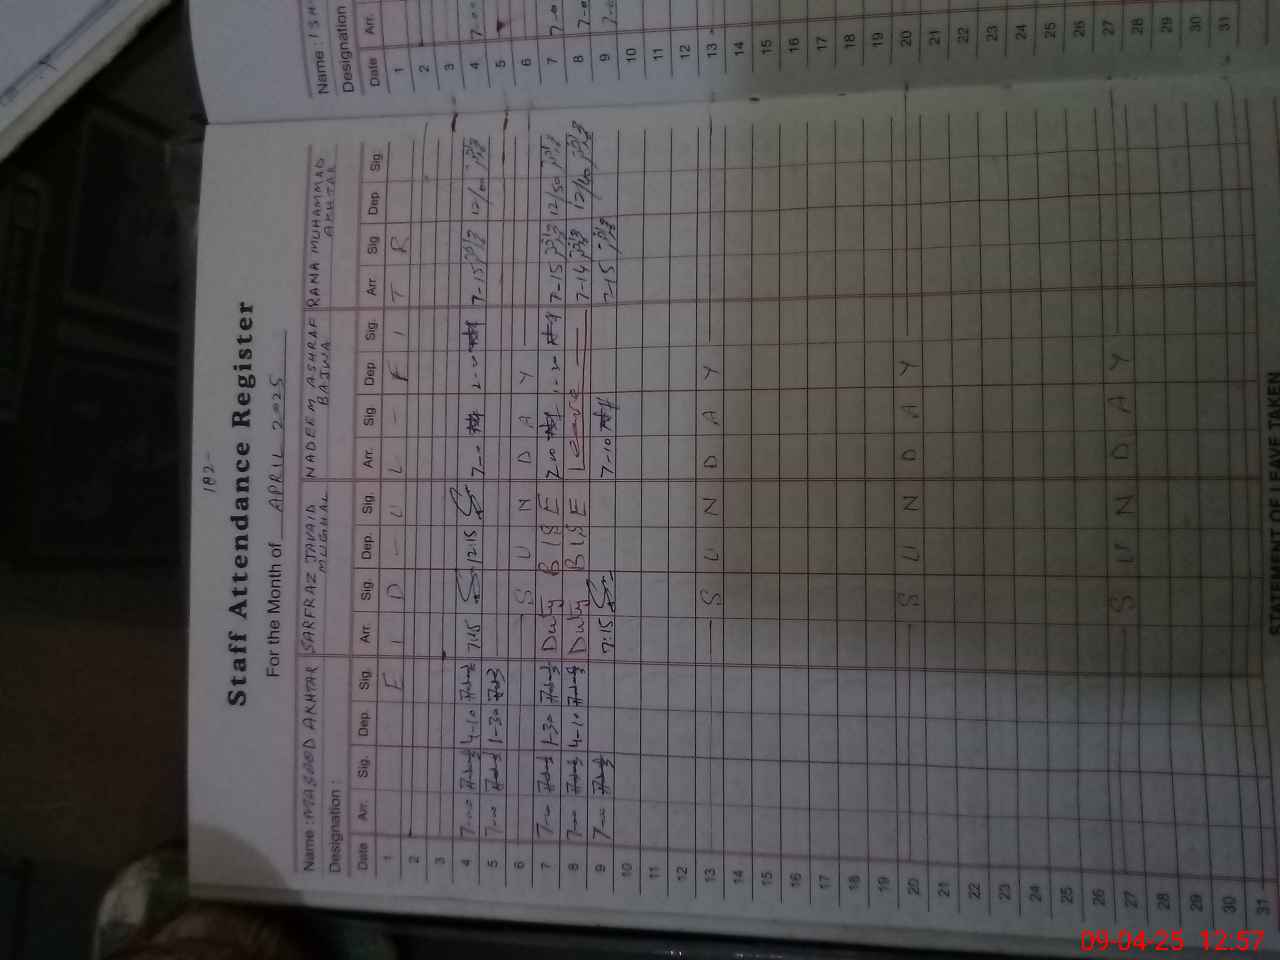 182
Staff Attendance Register
For the Month of APRIL 2025
Name : MASOOD AKHTAR SARFRAZ JAVAID MUGHAL NADEEM ASHRAF BAJWA RANA MUHAMMAD AKHTAR
Designation :
Date Arr. Sig. Dep. Sig. Arr. Sig. Dep. Sig. Arr. Sig Dep Sig. Arr Sig Dep Sig.
1 E I D - U L - F I T R
2
3
4 7-00 4-10 7:15 12:15 7-00 2-00 7-15 12/00
5 7-00 1-30
6 S U N D A Y
7 7-00 1-30 Duty BISE 7-00 1-30 7-15 12/50
8 7-00 4-10 Duty BISE Leave 7-14 12/40
9 7-00 7:15 7-10 7-15
10
11
12
13 S U N D A Y
14
15
16
17
18
19
20 S U N D A Y
21
22
23
24
25
26
27 S U N D A Y
28
29
30
31
STATEMENT OF LEAVE TAKEN
Name :
Designation
Date Arr.
1
2
3
4
5
6
7
8
9
10
11
12
13
14
15
16
17
18
19
20
21
22
23
24
25
26
27
28
29
30
31
09-04-25 12:57